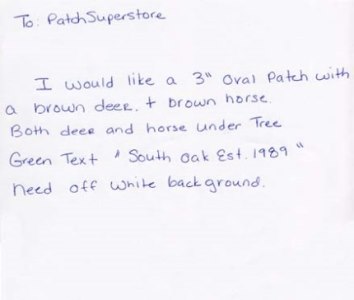 To: PatchSuperstore
I would like a 3" Oval Patch with
a brown deer. + brown horse.
Both deer and horse under Tree
Green Text " South Oak Est. 1989 "
need off white background.